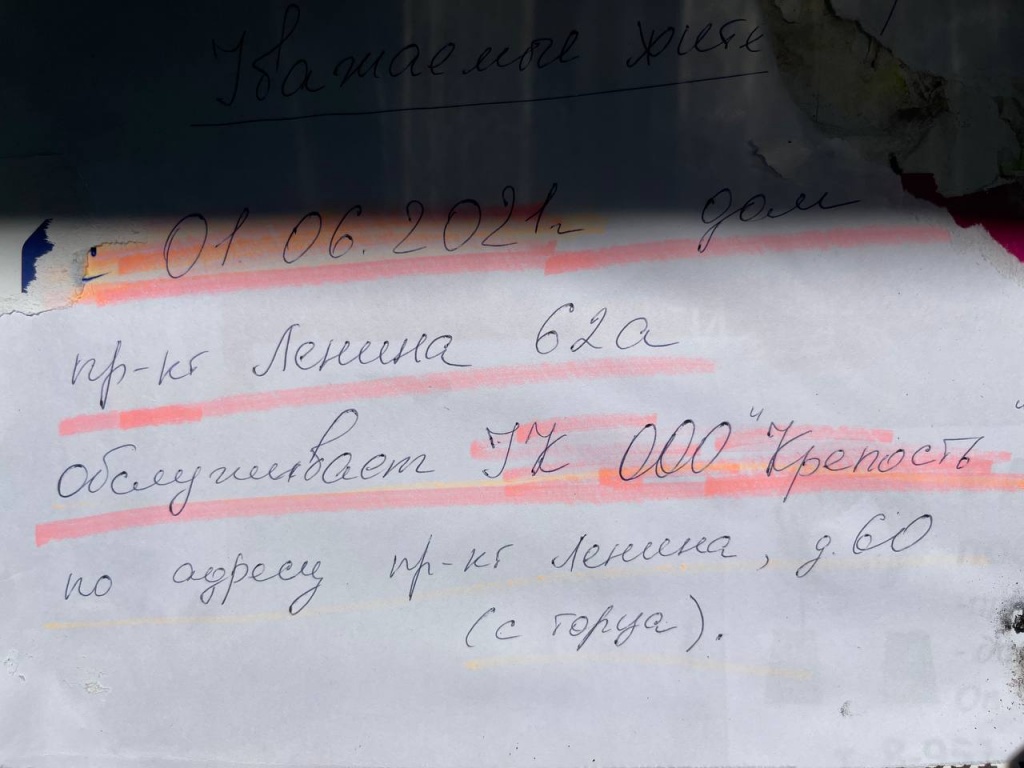 Уважаемые жите
01.06.2021г дом
пр-кт Ленина 62а
обслуживает УК ООО "Крепость"
по адресу пр-кт Ленина, д.60
(с торца).